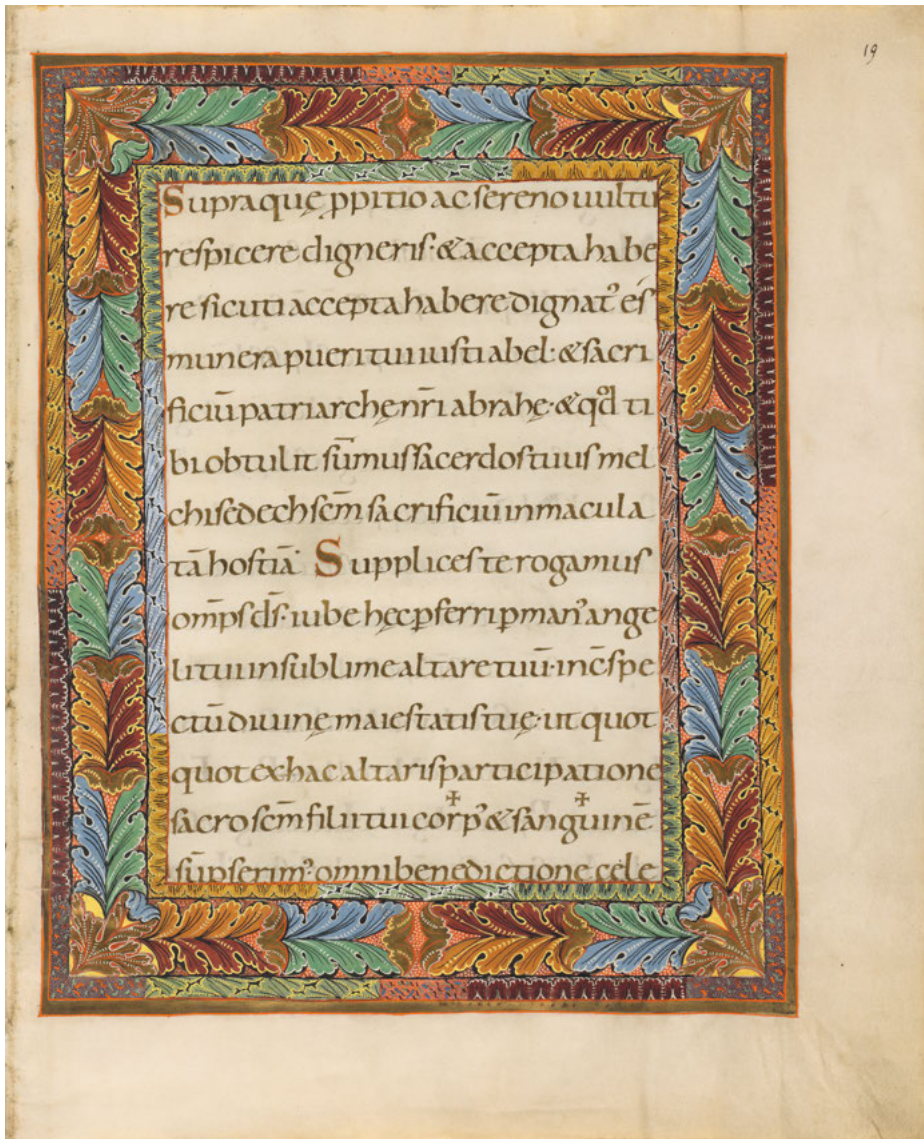 19
Supraquę ꝓpitio ac sereno uultu
respicere digneris· & accepta habe
re sicuti accepta habere dignatꝰ és
munera pueri tui iusti abel· & sacri
ficiū patriarchę nr̄i abrahę· & qd̛ ti
bi obtulit sūmus sacerdos tuus mel
chisedech sc̄m sacrificiū inmacula
tā hostiā· Supplices te rogamus
omp̄s ds̄· iube hęc ꝑferri ꝑ manꝰ ange
li tui in sublime altare tuū· in c̄spe
ctū diuinę maiestatis tuę· ut quot
quot ex hac altaris participatione
sacro sc̄m filii tui cor✢pꝰ & sangui✢nē
sūpserimꝰ· omni benedictione cęle